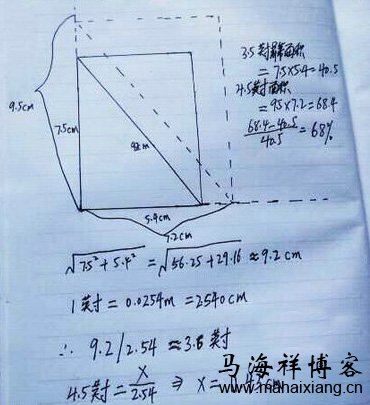 9.5cm
7.5cm
9.2cm
5.4cm
7.2cm
3.5英寸屏幕面积
= 7.5×5.4=40.5
4.5英寸面积
= 9.5×7.2=68.4
68.4-40.5
40.5
=68%
√7.5²+5.4² = √56.25+29.16 ≈ 9.2cm
1英寸=0.0254m=2.540cm
∴ 9.2/2.54 ≈3.6英寸
4.5英寸= X/2.54 ⇒ X=11.43cm
马海祥博客
www.mahaixiang.cn